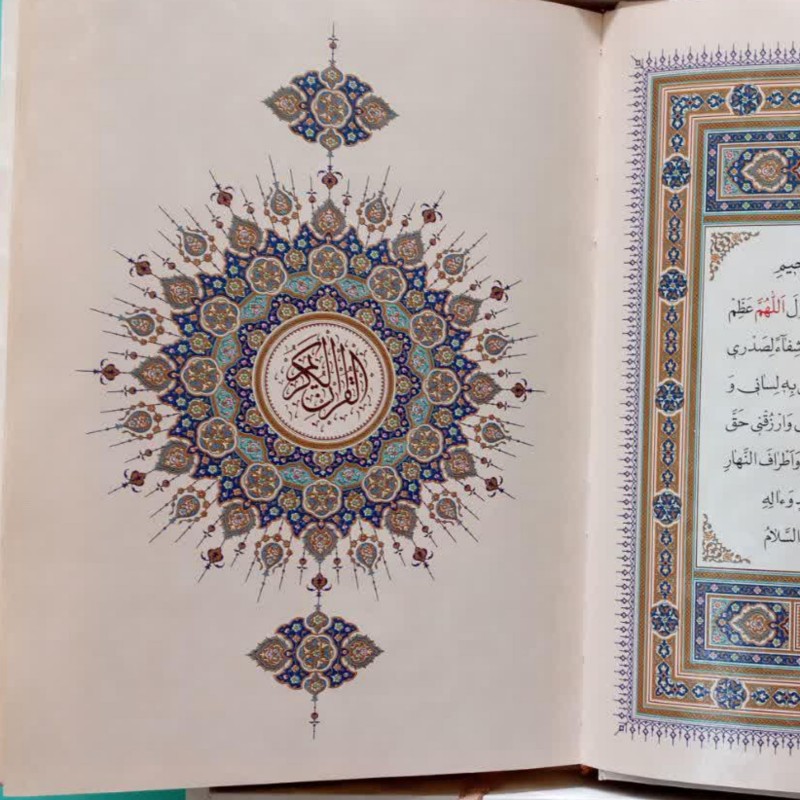 القرآن الكريم
اَللّٰهُمَّ عَظِّمْ
لِصَدْري
بِهِ لِساني وَ
وَارْزُقْني حَقَّ
وَاَطْرافَ النَّهارِ
وَءالِهِ
السَّلامُ